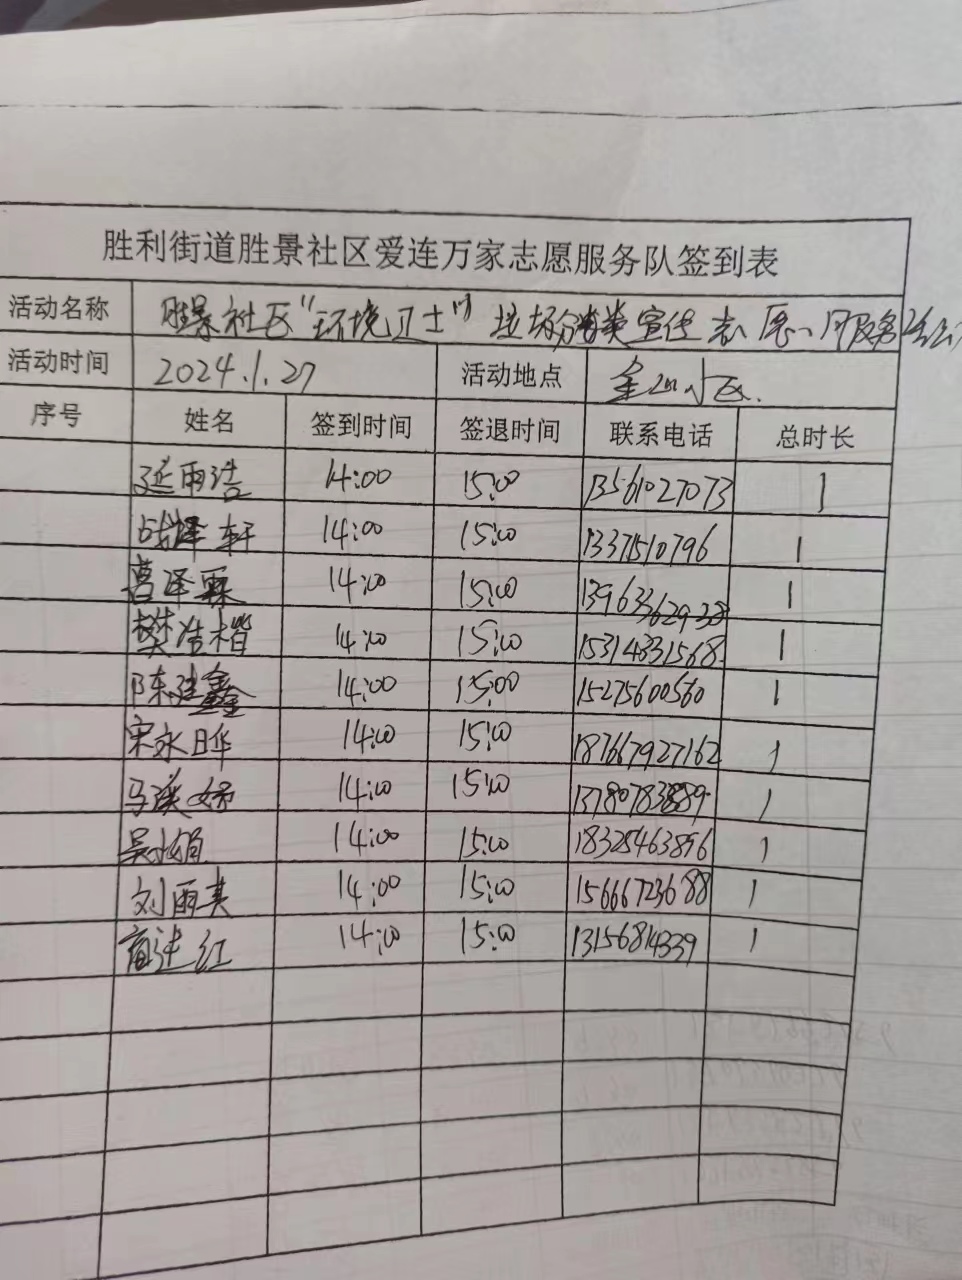 胜利街道胜景社区爱连万家志愿服务队签到表
活动名称 胜景社区“环境卫士”垃圾分类宣传志愿服务活动
活动时间 2024.1.27 活动地点 金山小区.
序号 姓名 签到时间 签退时间 联系电话 总时长
延雨浩 14:00 15:00 13561027073 1
轩 14:00 15:00 13371510796 1
曹泽霖 14:00 15:00 13963362938 1
樊浩楷 14:00 15:00 15314331568 1
陈建鑫 14:00 15:00 15275600560 1
宋永晔 14:00 15:00 187667927162 1
马溪妤 14:00 15:00 13780783889 1
吴娟 14:00 15:00 18328463896 1
刘雨其 14:00 15:00 15666723688 1
商建红 14:00 15:00 13156814339 1